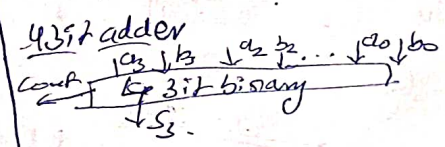 4 Bit adder
a3 b3 a2 b2 ... a0 b0
Cout 4 Bit binary
S3.